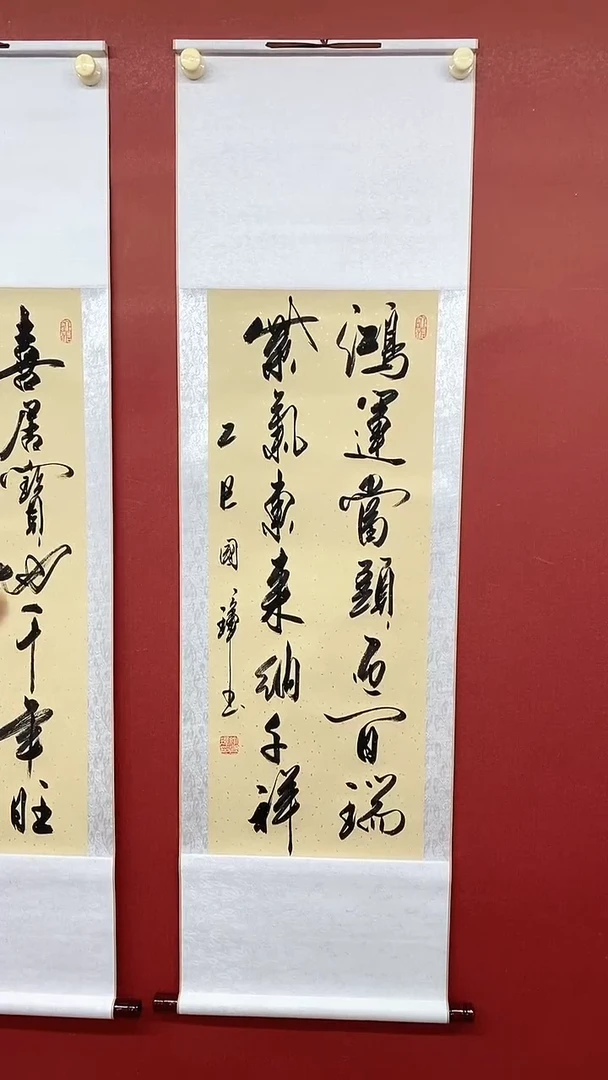 鴻運當頭百瑞
紫氣東來納千祥
乙巳國璋书
喜居寶地千年旺